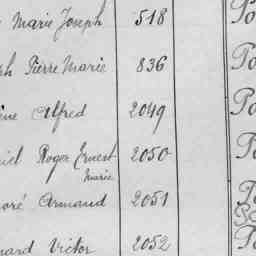 Marie Joseph 518 Po
ph Pierre Marie 836 Po
Alfred 2049 Po
Roger Ernest 2050 Po
Marie
oré Armand 2051 Po
nard Victor 2052 Po